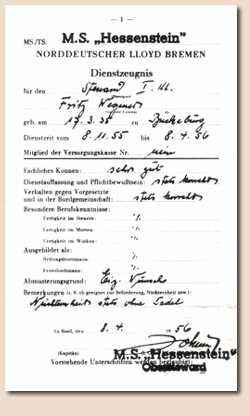 — 1 —
MS./TS. M.S. „Hessenstein"
NORDDEUTSCHER LLOYD BREMEN
Dienstzeugnis
für den Steward I. Kl.
Fritz Wegener
geb. am 17.3.35 zu Bückeburg
Dienstzeit vom 8.11.55 bis 8.4.56
Mitglied der Versorgungskasse Nr. nein
Fachliches Können: sehr gut
Dienstauffassung und Pflichtbewußtsein: stets korrekt
Verhalten gegen Vorgesetzte
und in der Bordgemeinschaft: stets korrekt
Besondere Berufskenntnisse:
Fertigkeit im Steuern:
Fertigkeit im
Fertigkeit im
Ausgebildet als:
Rettungsbootsmann:
Feuerschutzmann:
Abmusterungsgrund: Eig. Wunsch
Bemerkungen (z. B. ob geeignet zur Beförderung, Nüchternheit usw.):
Nüchternheit stets ohne Tadel
An Bord, den 8. 4. 56
(Kapitän) M.S. „Hessenstein"
Obersteward
Vorstehende Unterschriften werden beglaubigt: